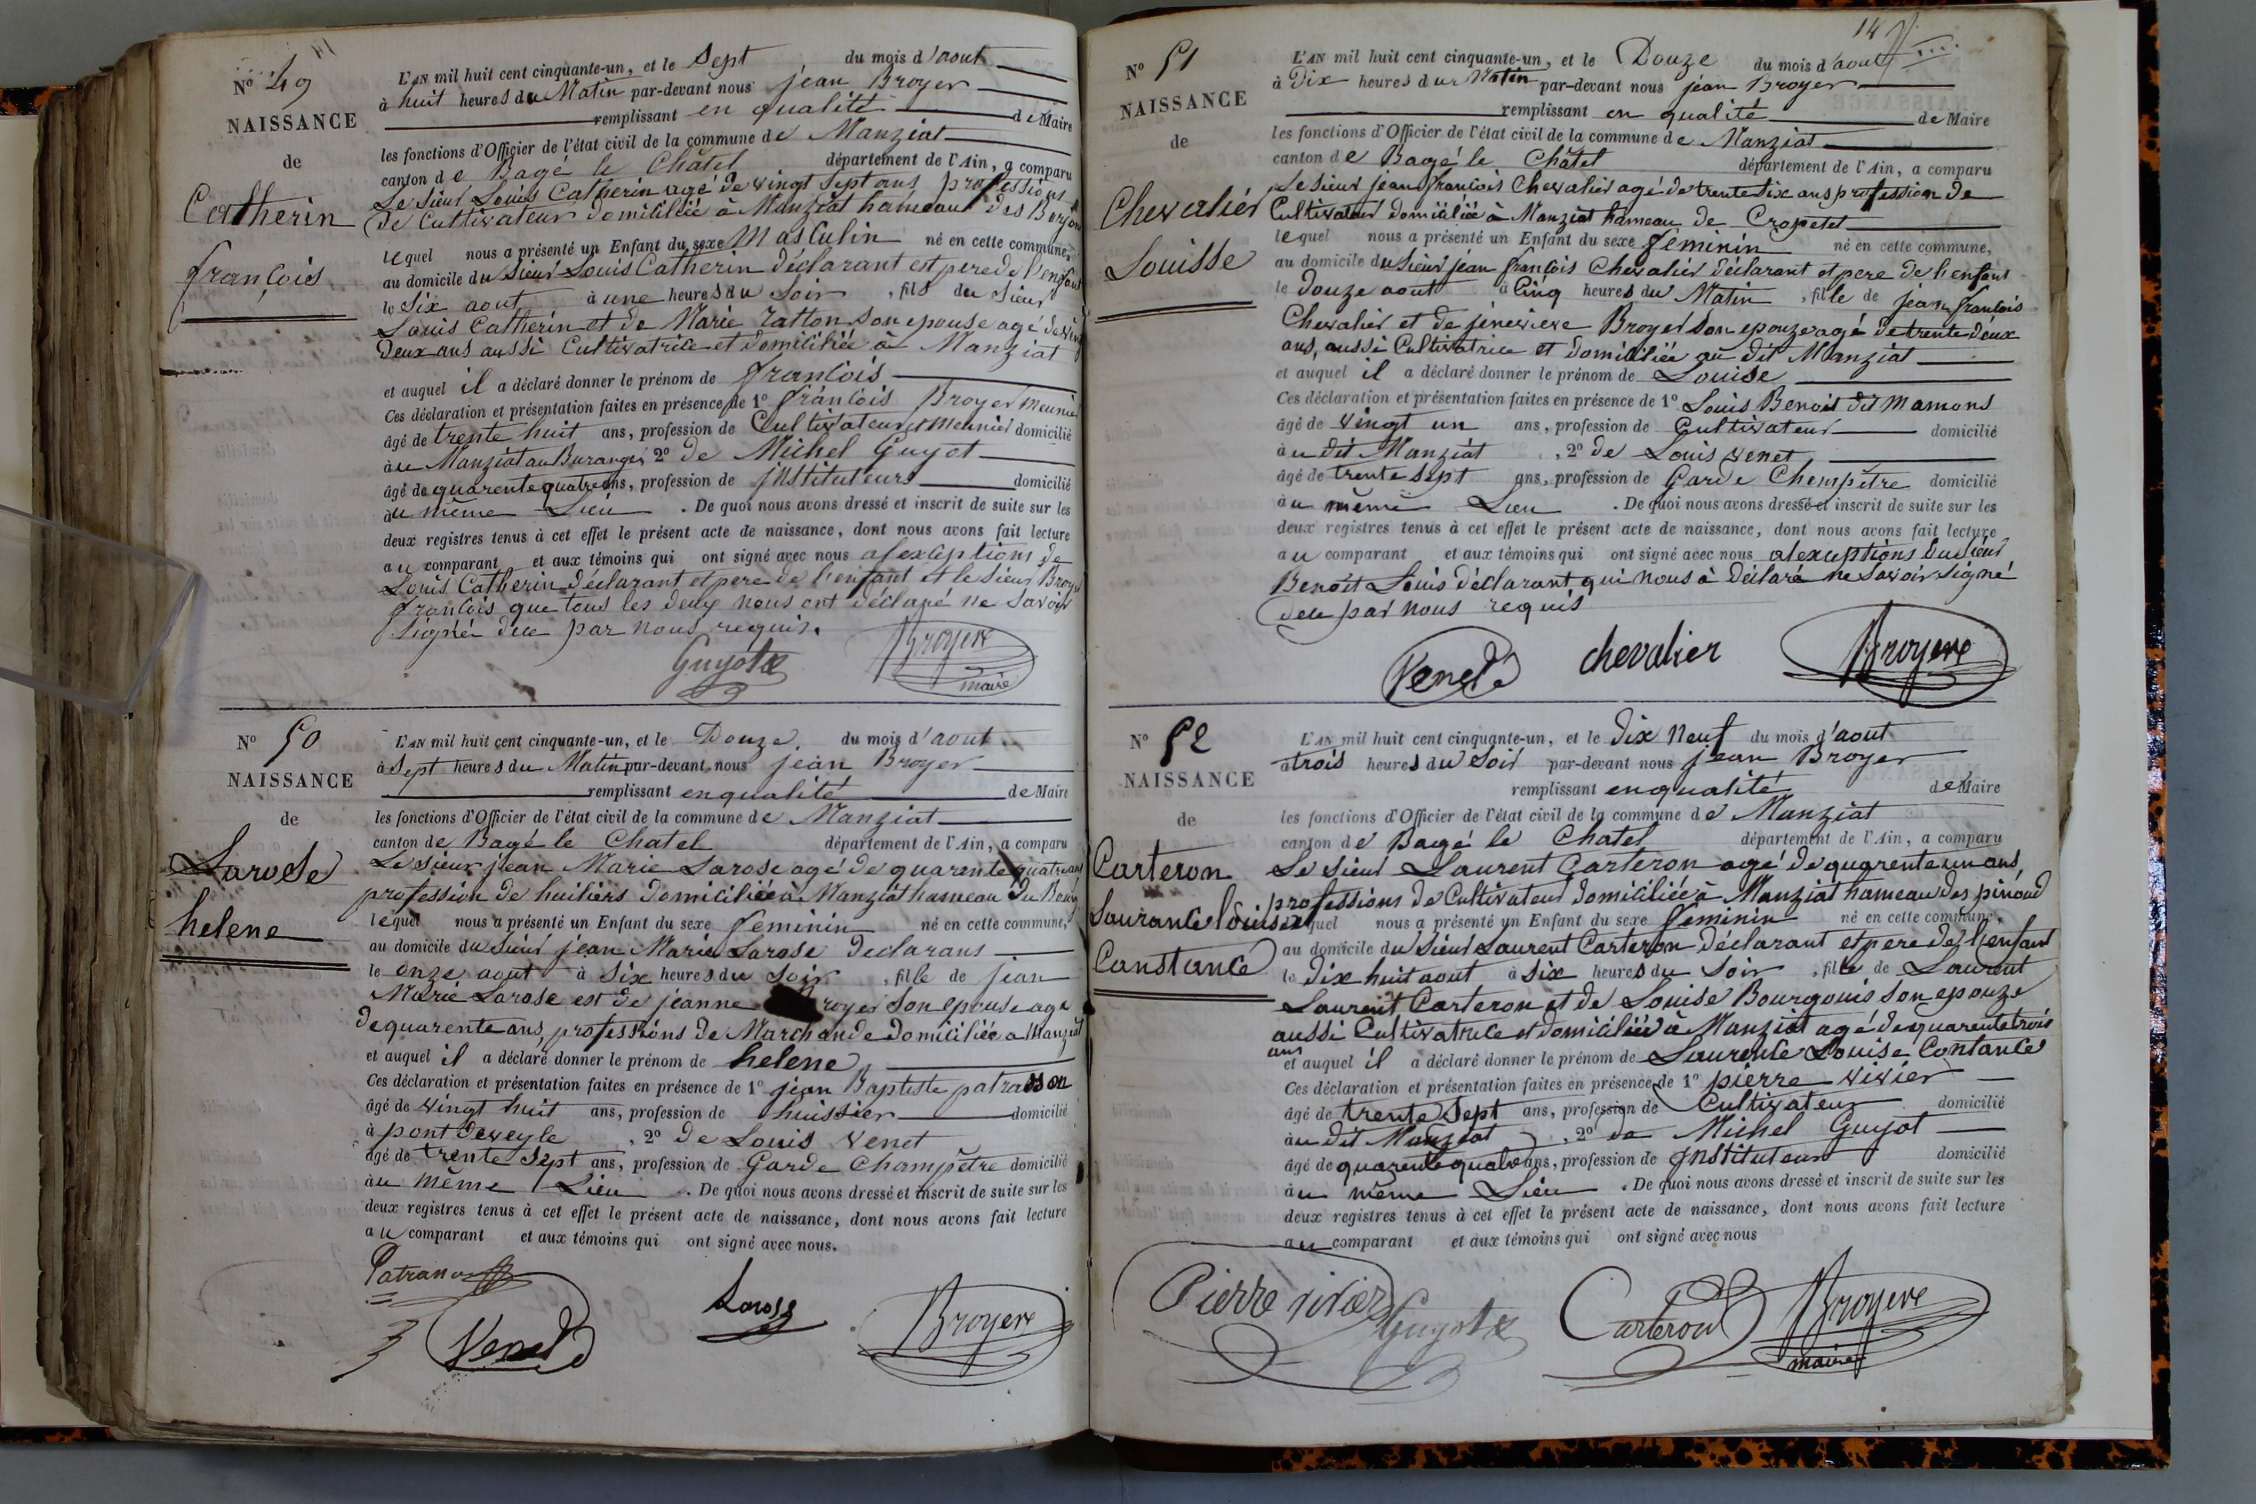 Nº 49
NAISSANCE
de
Catherin
françois
L'AN mil huit cent cinquante-un, et le Sept du mois d'aout
à huit heures du Matin par-devant nous jean Broyer
remplissant en qualité de Maire
les fonctions d'Officier de l'état civil de la commune de Manziat
canton de Bagé le Châtel département de l'Ain, a comparu
Le Sieur Louis Catherin agé de vingt Sept ans professions
de Cultivateur domiciliée à Manziat hameau des
lequel nous a présenté un Enfant du sexe Masculin né en cette commune,
au domicile du Sieur Louis Catherin déclarant est pere de l'enfant
le Six aout à une heures du Soir , fils du Sieur
Louis Catherin et de Marie Ratton Son epouse agé de vingt
Deux ans aussi Cultivatrice et domiciliée à Manziat
et auquel il a déclaré donner le prénom de françois
Ces déclaration et présentation faites en présence de 1º françois Broyer Meunier
âgé de trente huit ans, profession de Cultivateur et Meunier domicilié
au Manziat au Buranges 2º de Michel Guyot
âgé de quarente quatre ans, profession de instituteurs domicilié
au même Lieu . De quoi nous avons dressé et inscrit de suite sur les
deux registres tenus à cet effet le présent acte de naissance, dont nous avons fait lecture
au comparant et aux témoins qui ont signé avec nous alexceptions de
Louis Catherin déclarant et pere de l'enfant et le Sieur Broyer
françois que tous les deux nous ont déclaré ne Savoir
Signé dece par nous requis.
Guyot
Broyer
maire
Nº 50
NAISSANCE
de
Larose
helene
L'AN mil huit cent cinquante-un, et le Douze du mois d'aout
à Sept heures du Matin par-devant nous jean Broyer
remplissant en qualité de Maire
les fonctions d'Officier de l'état civil de la commune de Manziat
canton de Bagé le Chatel département de l'Ain, a comparu
Le Sieur jean Marie Larose agé de quarente quatre ans
profession de huiliers domiciliée à Manziat hameau du Bourg
lequel nous a présenté un Enfant du sexe feminin né en cette commune,
au domicile du Sieur jean Marie Larose declarans
le onze aout à Six heures du Soir , fille de jean
Marie Larose est de jeanne Broyer Son epouse age
de quarente ans, professions de Marchande domiciliée a Manziat
et auquel il a déclaré donner le prénom de helene
Ces déclaration et présentation faites en présence de 1º jean Baptiste patrasson
âgé de vingt huit ans, profession de huissier domicilié
à pont deveyle , 2º de Louis Venet
âgé de trente Sept ans, profession de Garde Champêtre domicilié
au même Lieu . De quoi nous avons dressé et inscrit de suite sur les
deux registres tenus à cet effet le présent acte de naissance, dont nous avons fait lecture
au comparant et aux témoins qui ont signé avec nous.
Venet
Larose
Broyer
14
Nº 51
NAISSANCE
de
Chevalier
Louisse
L'AN mil huit cent cinquante-un, et le Douze du mois d'aout
à Dix heures dur Matin par-devant nous jean Broyer
remplissant en qualité de Maire
les fonctions d'Officier de l'état civil de la commune de Manziat
canton de Bagé le Châtel département de l'Ain, a comparu
Le Sieur jean françois Chevalier agé de trente Six ans profession de
Cultivateur domiciliée à Manziat hameau de Cropetet
lequel nous a présenté un Enfant du sexe féminin né en cette commune,
au domicile du Sieur jean françois Chevalier déclarant et pere de l'enfant
le douze aout à Cinq heures du Matin , fille de jean françois
Chevalier et de jenevieve Broyer Son epouze agé de trente deux
ans, aussi Cultivatrice et domiciliée au dit Manziat
et auquel il a déclaré donner le prénom de Louise
Ces déclaration et présentation faites en présence de 1º Louis Benoit dit Mamons
âgé de vingt un ans, profession de Cultivateur domicilié
au dit Manziat , 2º de Louis Venet
âgé de trente Sept ans, profession de Garde Chempêtre domicilié
au même Lieu . De quoi nous avons dressé et inscrit de suite sur les
deux registres tenus à cet effet le présent acte de naissance, dont nous avons fait lecture
au comparant et aux témoins qui ont signé avec nous alexceptions du Sieur
Benoit Louis déclarant qui nous à déclaré ne Savoir Signé
dece par nous requis
Venet
chevalier
Broyer
Nº 52
NAISSANCE
de
Carteron
Laurance Louise
Constance
L'AN mil huit cent cinquante-un, et le dix Neuf du mois d'aout
à trois heures du Soir par-devant nous jean Broyer
remplissant en qualité de Maire
les fonctions d'Officier de l'état civil de la commune de Manziat
canton de Bagé le Chatel département de l'Ain, a comparu
Le Sieur Laurent Carteron agé de quarente un ans
professions de Cultivateur domiciliée à Manziat hameau des pinoud
lequel nous a présenté un Enfant du sexe feminin né en cette commune,
au domicile du Sieur Laurent Carteron déclarant et pere de l'enfant
le dix huit aout à Six heures du Soir , fille de Laurent
Laurent Carteron et de Louise Bourgouis Son epouze
aussi Cultivatrice et domiciliée à Manziat agé de quarente trois
ans
et auquel il a déclaré donner le prénom de Laurence Louise Contance
Ces déclaration et présentation faites en présence de 1º pierre vivier
âgé de trente Sept ans, profession de Cultivateur domicilié
au dit Manziat , 2º de Michel Guyot
âgé de quarente quatre ans, profession de instituteur domicilié
au même Lieu . De quoi nous avons dressé et inscrit de suite sur les
deux registres tenus à cet effet le présent acte de naissance, dont nous avons fait lecture
au comparant et aux témoins qui ont signé avec nous
Pierre vivier
Guyot
Carteron
Broyer
maire